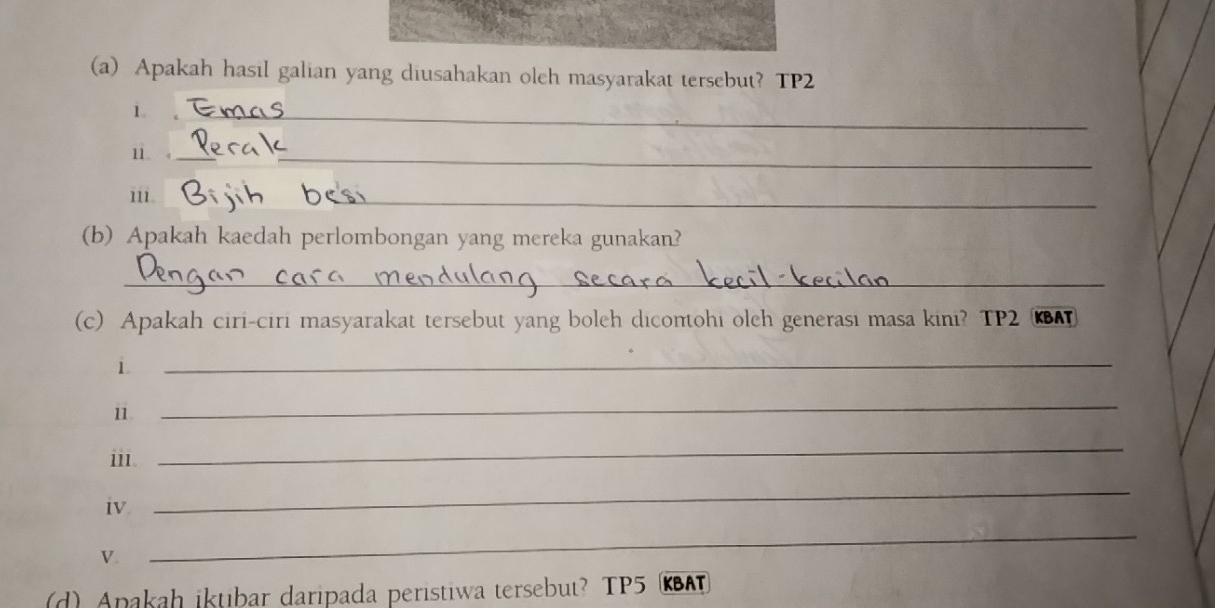 (a) Apakah hasil galian yang diusahakan oleh masyarakat tersebut? TP2
i. Emas
ii. Perak
iii. Bijih besi
(b) Apakah kaedah perlombongan yang mereka gunakan?
Dengan cara mendulang secara kecil-kecilan
(c) Apakah ciri-ciri masyarakat tersebut yang boleh dicontohi oleh generasi masa kini? TP2 KBAT
i.
ii.
iii.
iv.
v.
(d) Apakah iktibar daripada peristiwa tersebut? TP5 KBAT